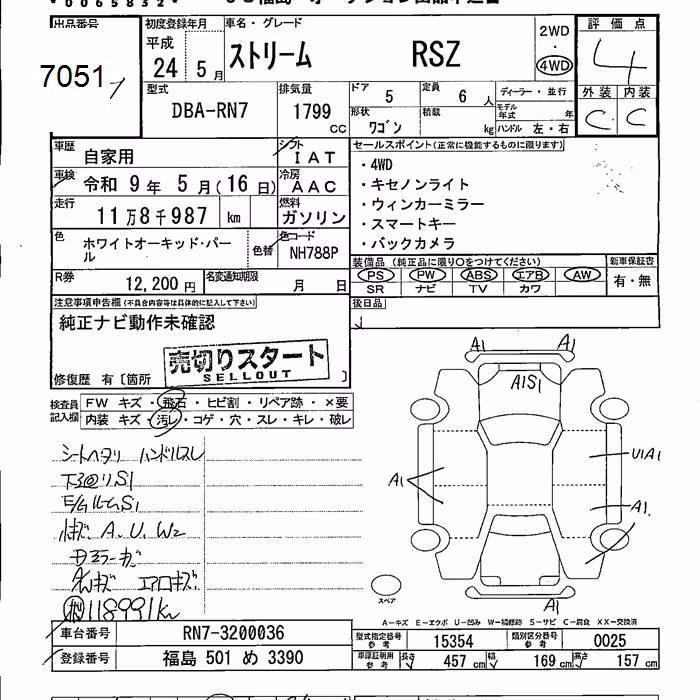 0065832
出品番号 初度登録年月 車名・グレード 評価点
7051 平成 24 5月 ストリーム RSZ 2WD 4WD 4
型式 排気量 ドア 5 定員 6人 ディーラー・並行 外装 内装
DBA-RN7 1799 cc 形状 ワゴン 積載 kg モデル年式 年 ハンドル 左・右 C C
車歴 自家用 シフト IAT セールスポイント(正常に機能するものに限ります)
車検 令和 9年 5月(16日) 冷房 AAC ・4WD
走行 11万8千987 km 燃料 ガソリン ・キセノンライト
・ウィンカーミラー
・スマートキー
・バックカメラ
色 ホワイトオーキッド・パール 色替 色コード NH788P
装備品(純正品に限り○をつけてください) 新車保証書
PS PW ABS エアB AW 有・無
SR ナビ TV カワ
R券 12,200円 名変通知期限 月 日
後日品
注意事項申告欄(不具合内容等は具体的に記入して下さい)
純正ナビ動作未確認
売切りスタート
SELLOUT
修復歴 有〔箇所 〕
検査員記入欄 FW キズ・飛石・ヒビ割・リペア跡・×要
内装 キズ・汚レ・コゲ・穴・スレ・キレ・破レ
シートヘタリ ハンドルスレ
下廻りS1
E/GルームS1
A.U.W2
エアロキズ
118991km
A1
A1S1
A1
U1A1
A1
A1
A1
スペア
A−キズ E−エクボ U−凹み W−補修跡 S−サビ C−腐食 XX−交換済
車台番号 RN7-3200036 型式指定番号 参考 15354 類別区分番号 参考 0025
登録番号 福島 501 め 3390 車庫証明用 参考 長さ 457cm 幅 169cm 高さ 157cm